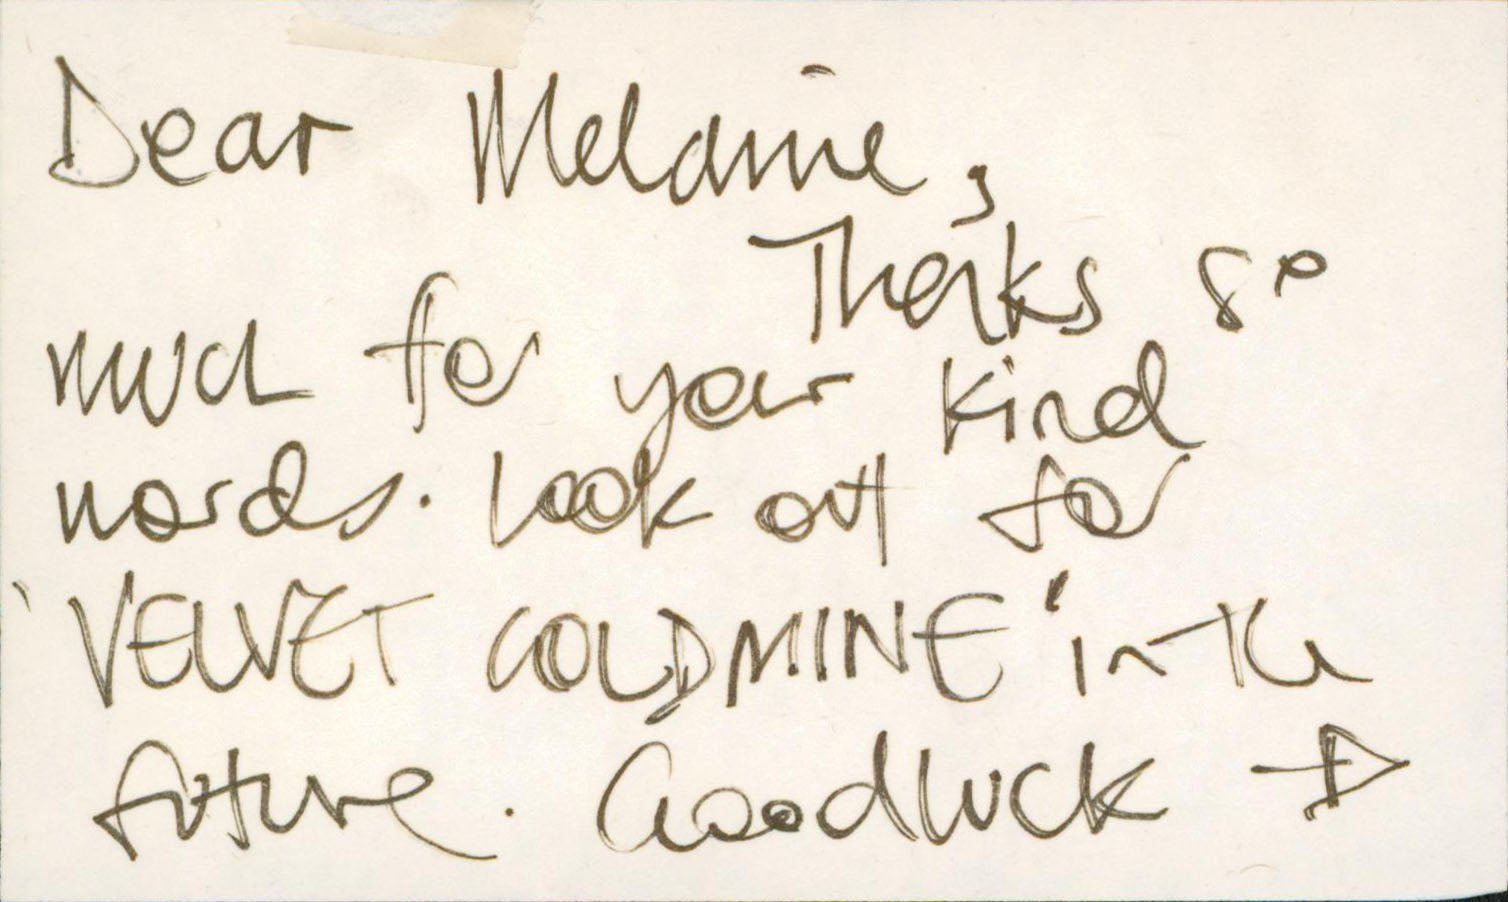 Dear Melanie,
Thanks so
much for your kind
words. Look out for
'VELVET GOLDMINE' in the
future. Good luck →